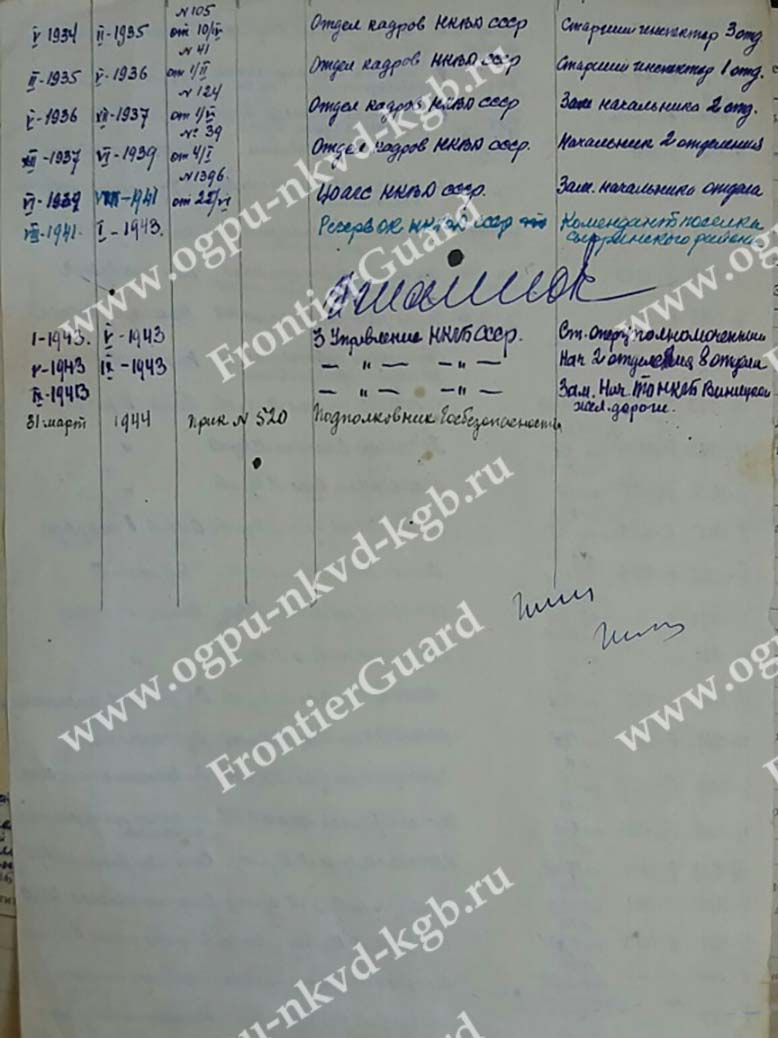 N 105
V-1934 II-1935 от 10/IV Отдел кадров НКВД СССР Старший инспектор 3 отд
N 41
II-1935 V-1936 от 1/II Отдел кадров НКВД СССР Старший инспектор 1 отд.
N 124
V-1936 XII-1937 от 1/VI Отдел кадров НКВД СССР Зам начальника 2 отд.
N° 39
XII-1937 VI-1939 от 4/I Отдел кадров НКВД СССР. Начальник 2 отделения
N 1396
VI-1939 VIII-1941 от 22/VI НКВД СССР. Зам. начальника отдела
VIII-1941. I-1943. Резерв ОК НКВД СССР Комендант поселка
района
I-1943. V-1943 3 Управление НКГБ СССР. Ст. оперуполномоченный
V-1943 IX-1943 — " — — " — Нач 2 отделения 8 отдела
IX-1943 — " — — " — Зам. Нач. ТО НКГБ Виницкой
жел. дороги.
31 март 1944 Прик N 520 Подполковник Госбезопасности
www.ogpu-nkvd-kgb.ru
FrontierGuard
www.ogpu-nkvd-kgb.ru
FrontierGuard
www.ogpu-nkvd-kgb.ru
FrontierGuard